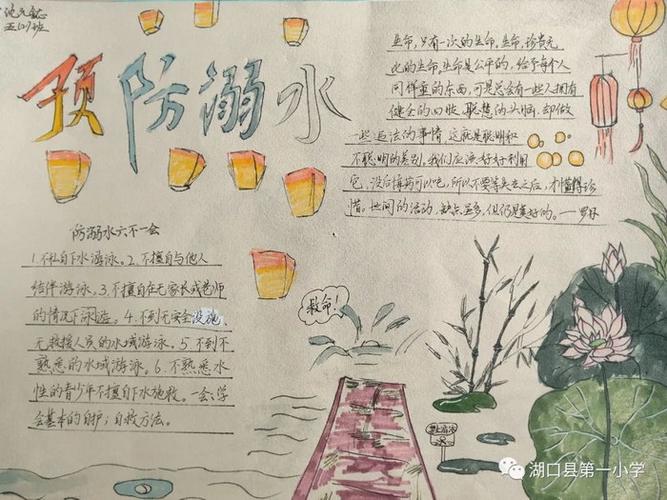 五(1)班
预防溺水
生命,只有一次的生命。生命,珍贵无
比的生命。生命是公平的,给予每个人
同样重的东西,可是总会有一些人拥有
健全的四肢,聪慧的头脑,却做
一些违法的事情,这就是聪明和
不聪明的差别,我们应该好好利用
它,没后悔药可以吃,所以不要等失去之后,才懂得珍
惜。世间的活动,缺点虽多,但仍是美好的。——罗丹
防溺水六不一会
1.不私自下水游泳。2.不擅自与他人
结伴游泳,3.不擅自在无家长或老师
的情况下泳游。4.不到无安全设施、
无救援人员的水域游泳。5.不到不
熟悉的水域游泳。6.不熟悉水
性的青少年不擅自下水施救。一会:学
会基本的自护;自救方法。
救命!
禁止游泳
湖口县第一小学